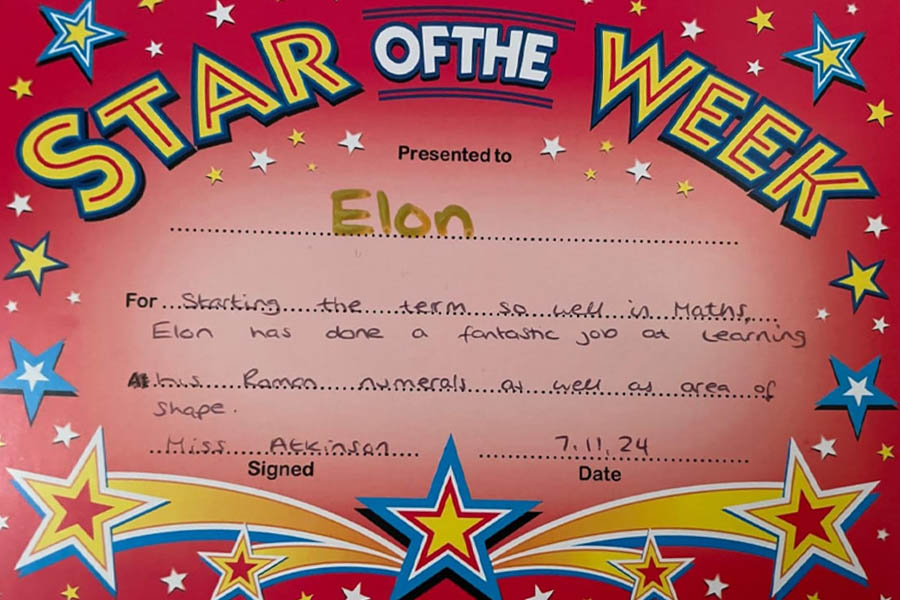 STAR OF THE WEEK
Presented to
Elon
For Starting the term so well in Maths,
Elon has done a fantastic job at Learning
his Roman numerals as well as area of
shape.
Miss Atkinson 7.11.24
Signed Date